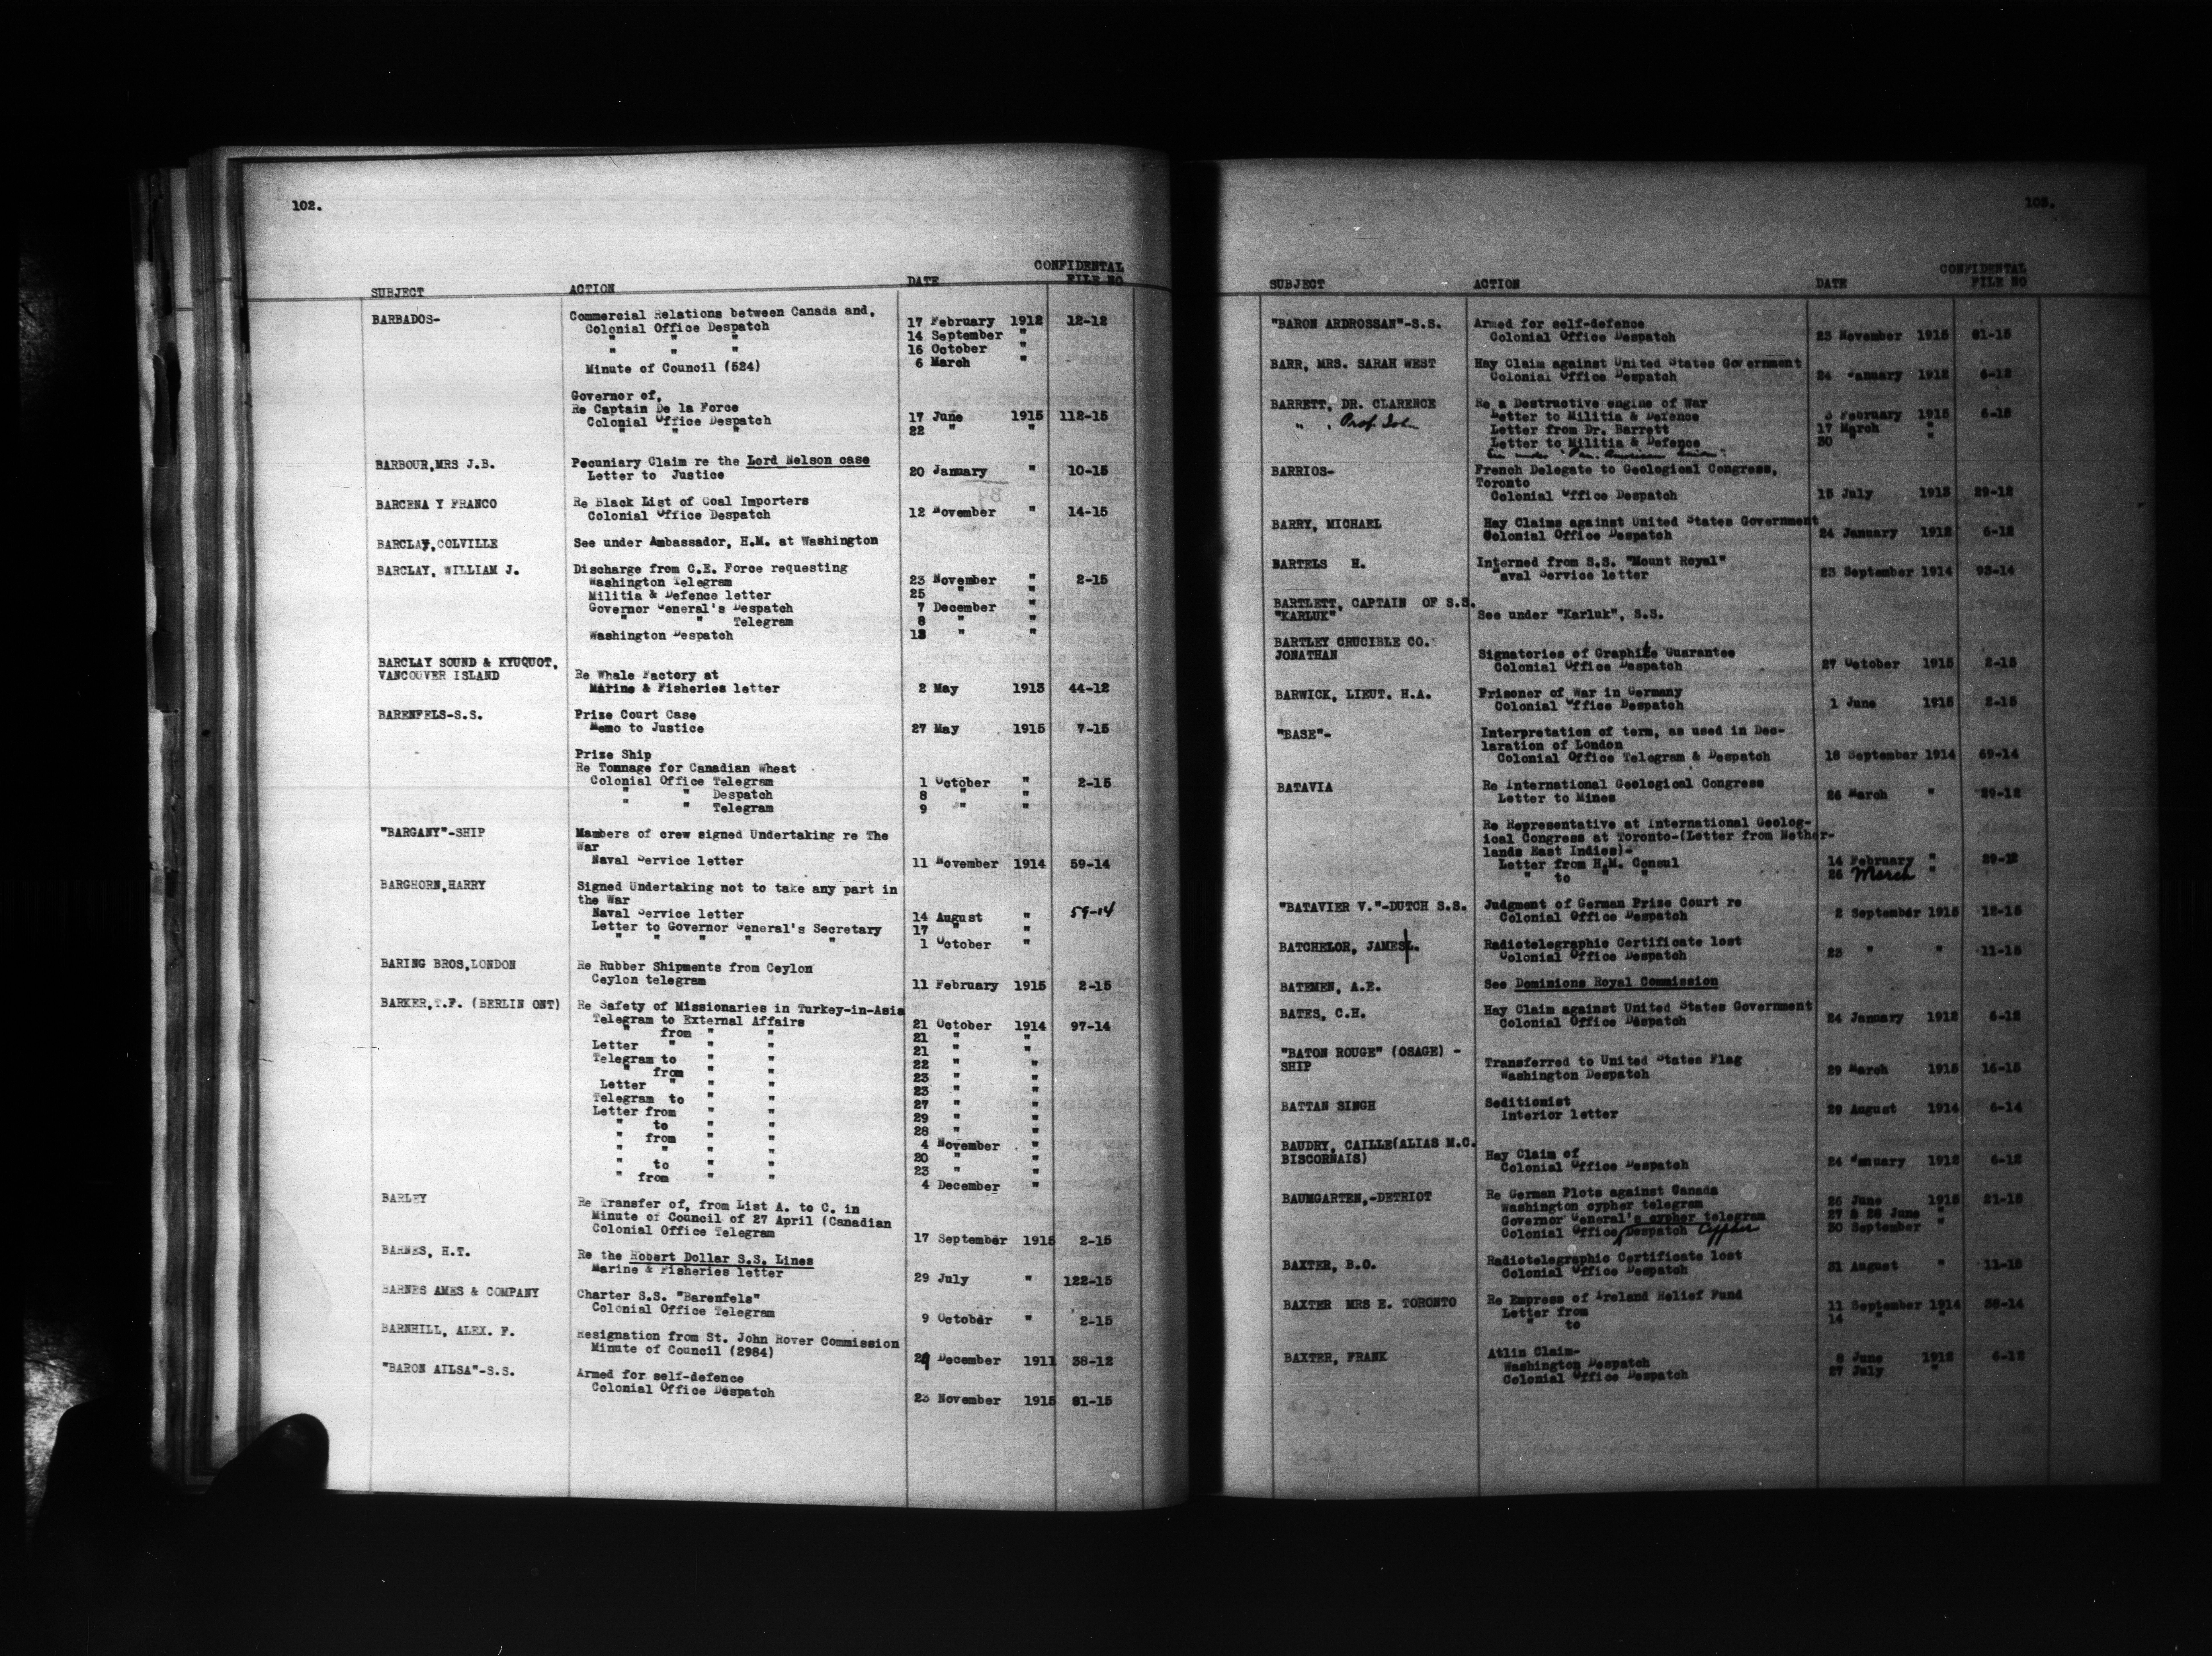 102.
CONFIDENTAL
SUBJECT ACTION DATE FILE NO
BARBADOS- Commercial Relations between Canada and,
Colonial Office Despatch 17 February 1912 12-12
" " " 14 September "
" " " 16 October "
Minute of Council (524) 6 March "
Governor of,
Re Captain De la Force
Colonial Office Despatch 17 June 1915 112-15
" " " 22 " "
BARBOUR,MRS J.B. Pecuniary Claim re the Lord Nelson case
Letter to Justice 20 January " 10-15
BARCENA Y FRANCO Re Black List of Coal Importers
Colonial Office Despatch 12 November " 14-15
BARCLAY,COLVILLE See under Ambassador, H.M. at Washington
BARCLAY, WILLIAM J. Discharge from C.E. Force requesting
Washington Telegram 23 November " 2-15
Militia & Defence letter 25 " "
Governor General's Despatch 7 December "
" " Telegram 8 " "
Washington Despatch 13 " "
BARCLAY SOUND & KYUQUOT,
VANCOUVER ISLAND Re Whale Factory at
Marine & Fisheries letter 2 May 1913 44-12
BARENFELS-S.S. Prize Court Case
Memo to Justice 27 May 1915 7-15
Prize Ship
Re Tonnage for Canadian Wheat
Colonial Office Telegram 1 October " 2-15
" " Despatch 8 " "
" " Telegram 9 " "
"BARGANY"-SHIP Mambers of crew signed Undertaking re The
War
Naval Service letter 11 November 1914 59-14
BARGHORN,HARRY Signed Undertaking not to take any part in
the War
Naval Service letter 14 August " 59-14
Letter to Governor General's Secretary 17 " "
" " " " " 1 October "
BARING BROS,LONDON Re Rubber Shipments from Ceylon
Ceylon telegram 11 February 1915 2-15
BARKER,T.F. (BERLIN ONT) Re Safety of Missionaries in Turkey-in-Asia
Telegram to External Affairs 21 October 1914 97-14
" from " " 21 " "
Letter " " " 21 " "
Telegram to " " 22 " "
" from " " 23 " "
Letter " " " 23 " "
Telegram to " " 27 " "
Letter from " " 29 " "
" to " " 28 " "
" from " " 4 November "
" " " " 20 " "
" to " " 23 " "
" from " " 4 December "
BARLEY Re Transfer of, from List A. to C. in
Minute of Council of 27 April (Canadian
Colonial Office Telegram 17 September 1915 2-15
BARNES, H.T. Re the Robert Dollar S.S. Lines
Marine & Fisheries letter 29 July " 122-15
BARNES AMES & COMPANY Charter S.S. "Barenfels"
Colonial Office Telegram 9 October " 2-15
BARNHILL, ALEX. F. Resignation from St. John Rover Commission
Minute of Council (2984) 29 December 1911 38-12
"BARON AILSA"-S.S. Armed for self-defence
Colonial Office Despatch 23 November 1915 81-15
103.
CONFIDENTIAL
SUBJECT ACTION DATE FILE NO
"BARON ARDROSSAN"-S.S. Armed for self-defence
Colonial Office Despatch 23 November 1915 81-15
BARR, MRS. SARAH WEST Hay Claim against United States Government
Colonial Office Despatch 24 January 1912 6-12
BARRETT, DR. CLARENCE Re a Destructive engine of War
" , Prof. John Letter to Militia & Defence 3 February 1915 6-15
Letter from Dr. Barrett 17 March "
Letter to Militia & Defence 30 " "
See under "Pan. American Union".
BARRIOS- French Delegate to Geological Congress,
Toronto
Colonial Office Despatch 15 July 1913 29-12
BARRY, MICHAEL Hay Claims against United States Government
Colonial Office Despatch 24 January 1912 6-12
BARTELS H. Interned from S.S. "Mount Royal"
Naval Service letter 23 September 1914 93-14
BARTLETT, CAPTAIN OF S.S.
"KARLUK" See under "Karluk", S.S.
BARTLEY CRUCIBLE CO.
JONATHAN Signatories of Graphite Guarantee
Colonial Office Despatch 27 October 1915 2-15
BARWICK, LIEUT. H.A. Prisoner of War in Germany
Colonial Office Despatch 1 June 1915 2-15
"BASE"- Interpretation of term, as used in Dec-
laration of London
Colonial Office Telegram & Despatch 18 September 1914 69-14
BATAVIA Re International Geological Congress
Letter to Mines 26 March " 29-12
Re Representative at International Geolog-
ical Congress at Toronto-(Letter from Nether-
lands East Indies)-
Letter from H.M. Consul 14 February " 29-12
" to " " 26 March "
"BATAVIER V."-DUTCH S.S. Judgment of German Prize Court re
Colonial Office Despatch 2 September 1915 12-15
BATCHELOR, JAMES L. Radiotelegraphic Certificate lost
Colonial Office Despatch 23 " " 11-15
BATEMEN, A.E. See Dominions Royal Commission
BATES, C.H. Hay Claim against United States Government
Colonial Office Despatch 24 January 1912 6-12
"BATON ROUGE" (OSAGE) -
SHIP Transferred to United States Flag
Washington Despatch 29 March 1915 16-15
BATTAN SINGH Seditionist
Interior letter 29 August 1914 6-14
BAUDRY, CAILLE(ALIAS M.C.
BISCORNAIS) Hay Claim of
Colonial Office Despatch 24 January 1912 6-12
BAUMGARTEN,-DETRIOT Re German Plots against Canada
Washington cypher telegram 26 June 1915 21-15
Governor General's cypher telegram 27 & 28 June "
Colonial Office Despatch Cypher 30 September "
BAXTER, B.O. Radiotelegraphic Certificate lost
Colonial Office Despatch 31 August " 11-15
BAXTER MRS E. TORONTO Re Empress of Ireland Relief Fund
Letter from 11 September 1914 38-14
" to 14 " "
BAXTER, FRANK Atlin Claim-
Washington Despatch 8 June 1912 6-12
Colonial Office Despatch 27 July "